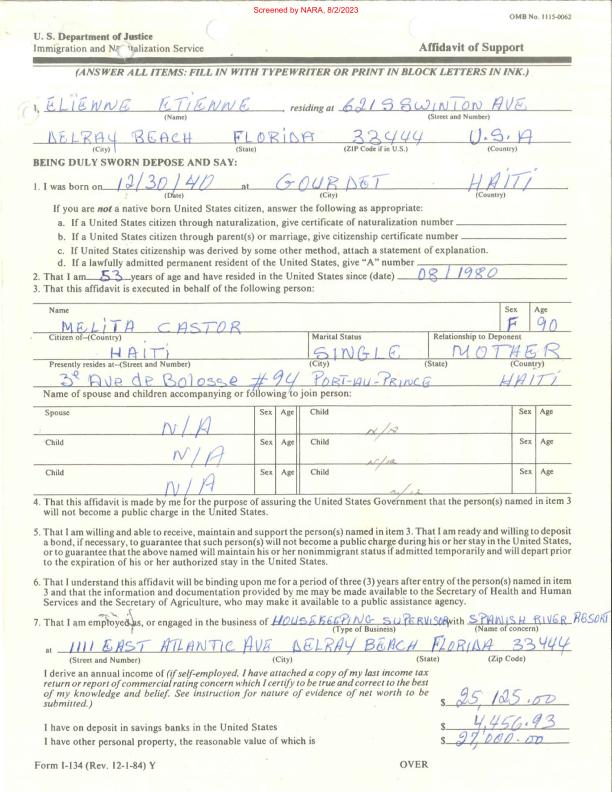 Screened by NARA, 8/2/2023
OMB No. 1115-0062
U. S. Department of Justice
Immigration and Naturalization Service Affidavit of Support
(ANSWER ALL ITEMS: FILL IN WITH TYPEWRITER OR PRINT IN BLOCK LETTERS IN INK.)
I, ELIENNE ETIENNE, residing at 621 S SWINTON AVE
(Name) (Street and Number)
DELRAY BEACH FLORIDA 33444 U.S.A
(City) (State) (ZIP Code if in U.S.) (Country)
BEING DULY SWORN DEPOSE AND SAY:
1. I was born on 12/30/40 at GOURDET HAITI
(Date) (City) (Country)
If you are not a native born United States citizen, answer the following as appropriate:
a. If a United States citizen through naturalization, give certificate of naturalization number
b. If a United States citizen through parent(s) or marriage, give citizenship certificate number
c. If United States citizenship was derived by some other method, attach a statement of explanation.
d. If a lawfully admitted permanent resident of the United States, give "A" number
2. That I am 53 years of age and have resided in the United States since (date) 08/1980
3. That this affidavit is executed in behalf of the following person:
Name Sex Age
MELITA CASTOR F 90
Citizen of-(Country) Marital Status Relationship to Deponent
HAITI SINGLE MOTHER
Presently resides at-(Street and Number) (City) (State) (Country)
3e Ave de Bolosse #94 PORT-AU-PRINCE HAITI
Name of spouse and children accompanying or following to join person:
Spouse Sex Age Child Sex Age
N/A N/A
Child Sex Age Child Sex Age
N/A N/A
Child Sex Age Child Sex Age
N/A N/A
4. That this affidavit is made by me for the purpose of assuring the United States Government that the person(s) named in item 3
will not become a public charge in the United States.
5. That I am willing and able to receive, maintain and support the person(s) named in item 3. That I am ready and willing to deposit
a bond, if necessary, to guarantee that such person(s) will not become a public charge during his or her stay in the United States,
or to guarantee that the above named will maintain his or her nonimmigrant status if admitted temporarily and will depart prior
to the expiration of his or her authorized stay in the United States.
6. That I understand this affidavit will be binding upon me for a period of three (3) years after entry of the person(s) named in item
3 and that the information and documentation provided by me may be made available to the Secretary of Health and Human
Services and the Secretary of Agriculture, who may make it available to a public assistance agency.
7. That I am employed as, or engaged in the business of HOUSEKEEPING SUPERVISOR with SPANISH RIVER RESORT
(Type of Business) (Name of concern)
at 1111 EAST ATLANTIC AVE DELRAY BEACH FLORIDA 33444
(Street and Number) (City) (State) (Zip Code)
I derive an annual income of (if self-employed, I have attached a copy of my last income tax
return or report of commercial rating concern which I certify to be true and correct to the best
of my knowledge and belief. See instruction for nature of evidence of net worth to be
submitted.) $ 25,125.00
I have on deposit in savings banks in the United States $ 4,456.93
I have other personal property, the reasonable value of which is $ 27,000.00
Form I-134 (Rev. 12-1-84) Y OVER